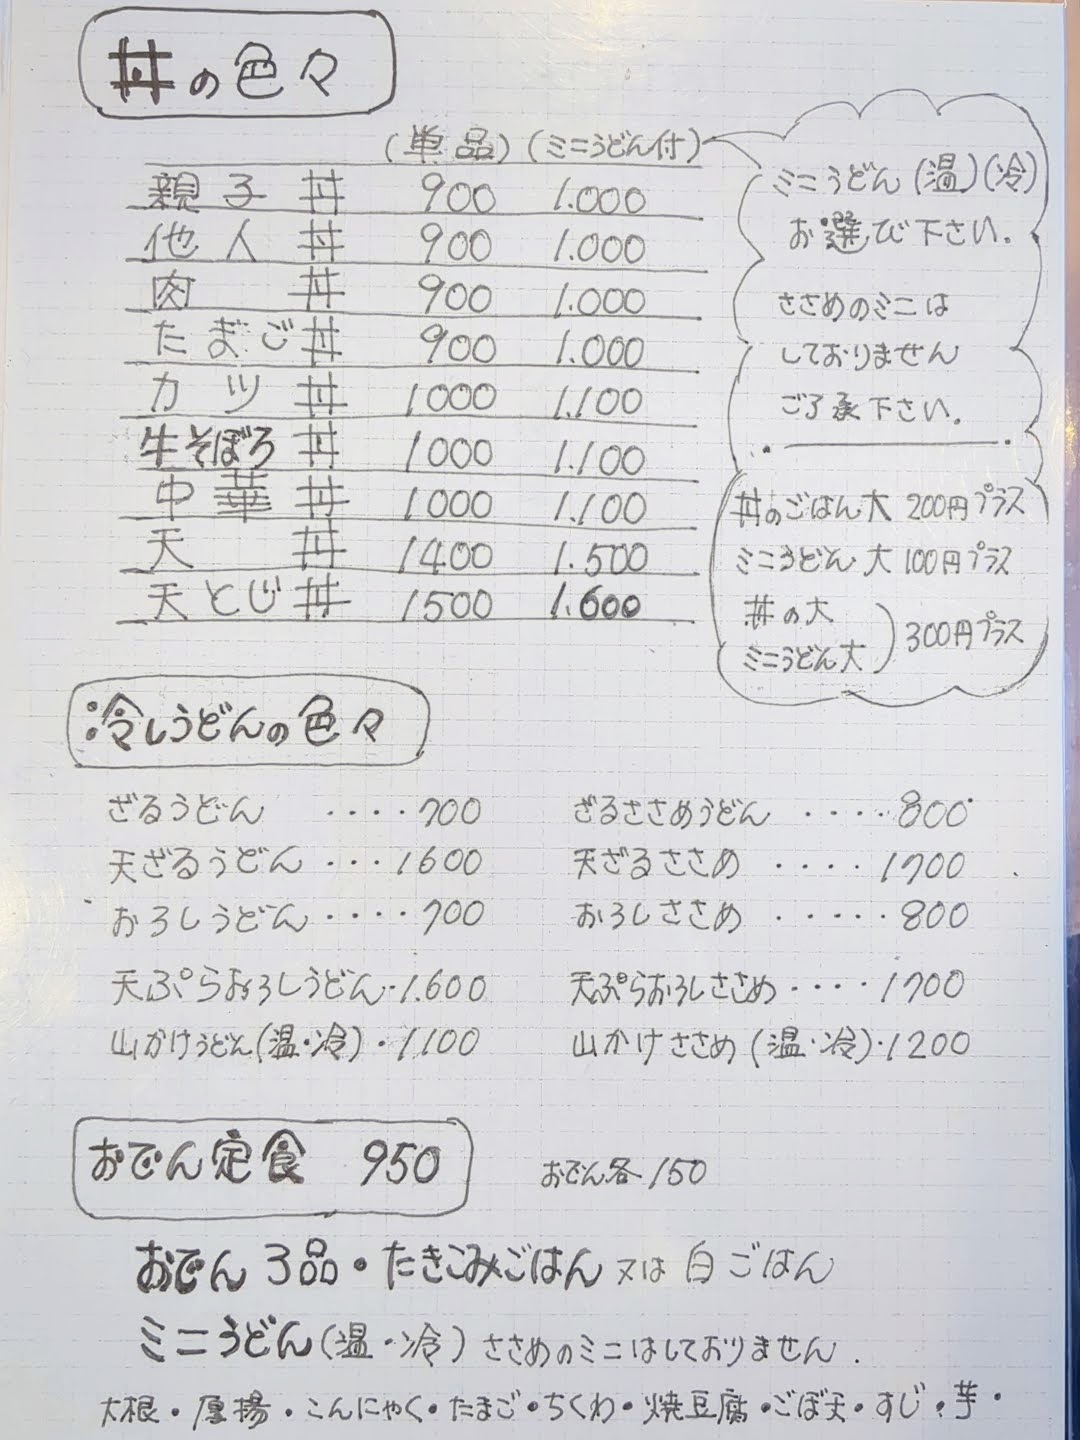 丼の色々
(単品) (ミニうどん付)
親子丼 900 1.000
他人丼 900 1.000
肉丼 900 1.000
たまご丼 900 1.000
カツ丼 1000 1.100
牛そぼろ丼 1000 1.100
中華丼 1000 1.100
天丼 1400 1.500
天とじ丼 1500 1.600
ミニうどん(温)(冷)
お選び下さい.
ささめのミニは
しておりません
ご了承下さい.
丼のごはん大 200円プラス
ミニうどん大 100円プラス
丼の大
ミニうどん大
300円プラス
冷しうどんの色々
ざるうどん ････700
天ざるうどん ･･･1600
おろしうどん････700
天ぷらおろしうどん･1.600
山かけうどん(温･冷)･1100
ざるささめうどん ････800
天ざるささめ ････1700
おろしささめ ･････800
天ぷらおろしささめ････1700
山かけささめ(温･冷)･1200
おでん定食 950
おでん各150
おでん3品・たきこみごはん又は白ごはん
ミニうどん(温・冷)ささめのミニはしておりません.
大根・厚揚・こんにゃく・たまご・ちくわ・焼豆腐・ごぼ天・すじ・芋・